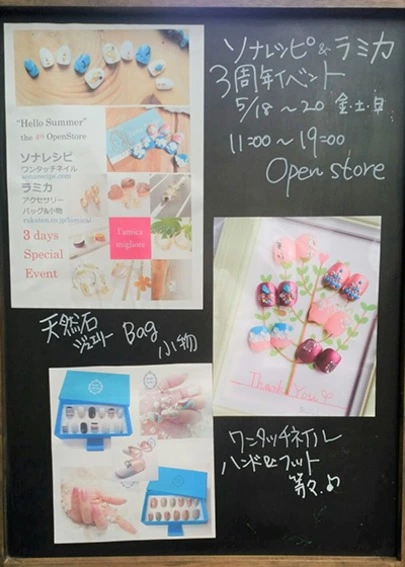 ソナレッピ&ラミカ
3周年イベント
5/18~20 金・土・日
11:00~19:00
Open store
"Hello Summer"
the 4th OpenStore
ソナレシピ
ワンタッチネイル
sonarecipe.com
ラミカ
アクセサリー
バッグ&小物
l'amica
migliore
3 days
Special
Event
Thank You
天然石
ジュエリー Bag 小物
ワンタッチネイル
ハンド&フット
等々♪